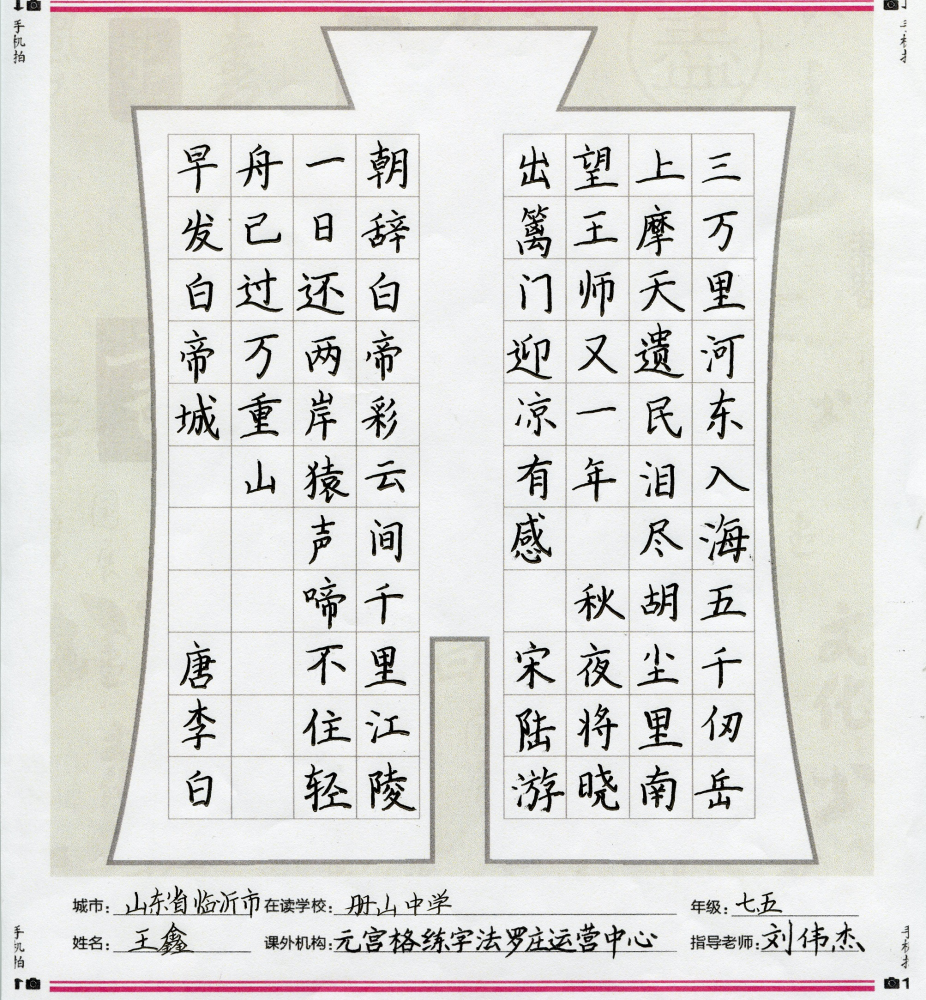 三万里河东入海五千仞岳
上摩天遗民泪尽胡尘里南
望王师又一年 秋夜将晓
出篱门迎凉有感 宋陆游
朝辞白帝彩云间千里江陵
一日还两岸猿声啼不住轻
舟已过万重山
早发白帝城 唐李白
城市: 山东省临沂市 在读学校: 册山中学 年级: 七五
姓名: 王鑫 课外机构: 元宫格练字法罗庄运营中心 指导老师: 刘伟杰
手机拍
手机拍